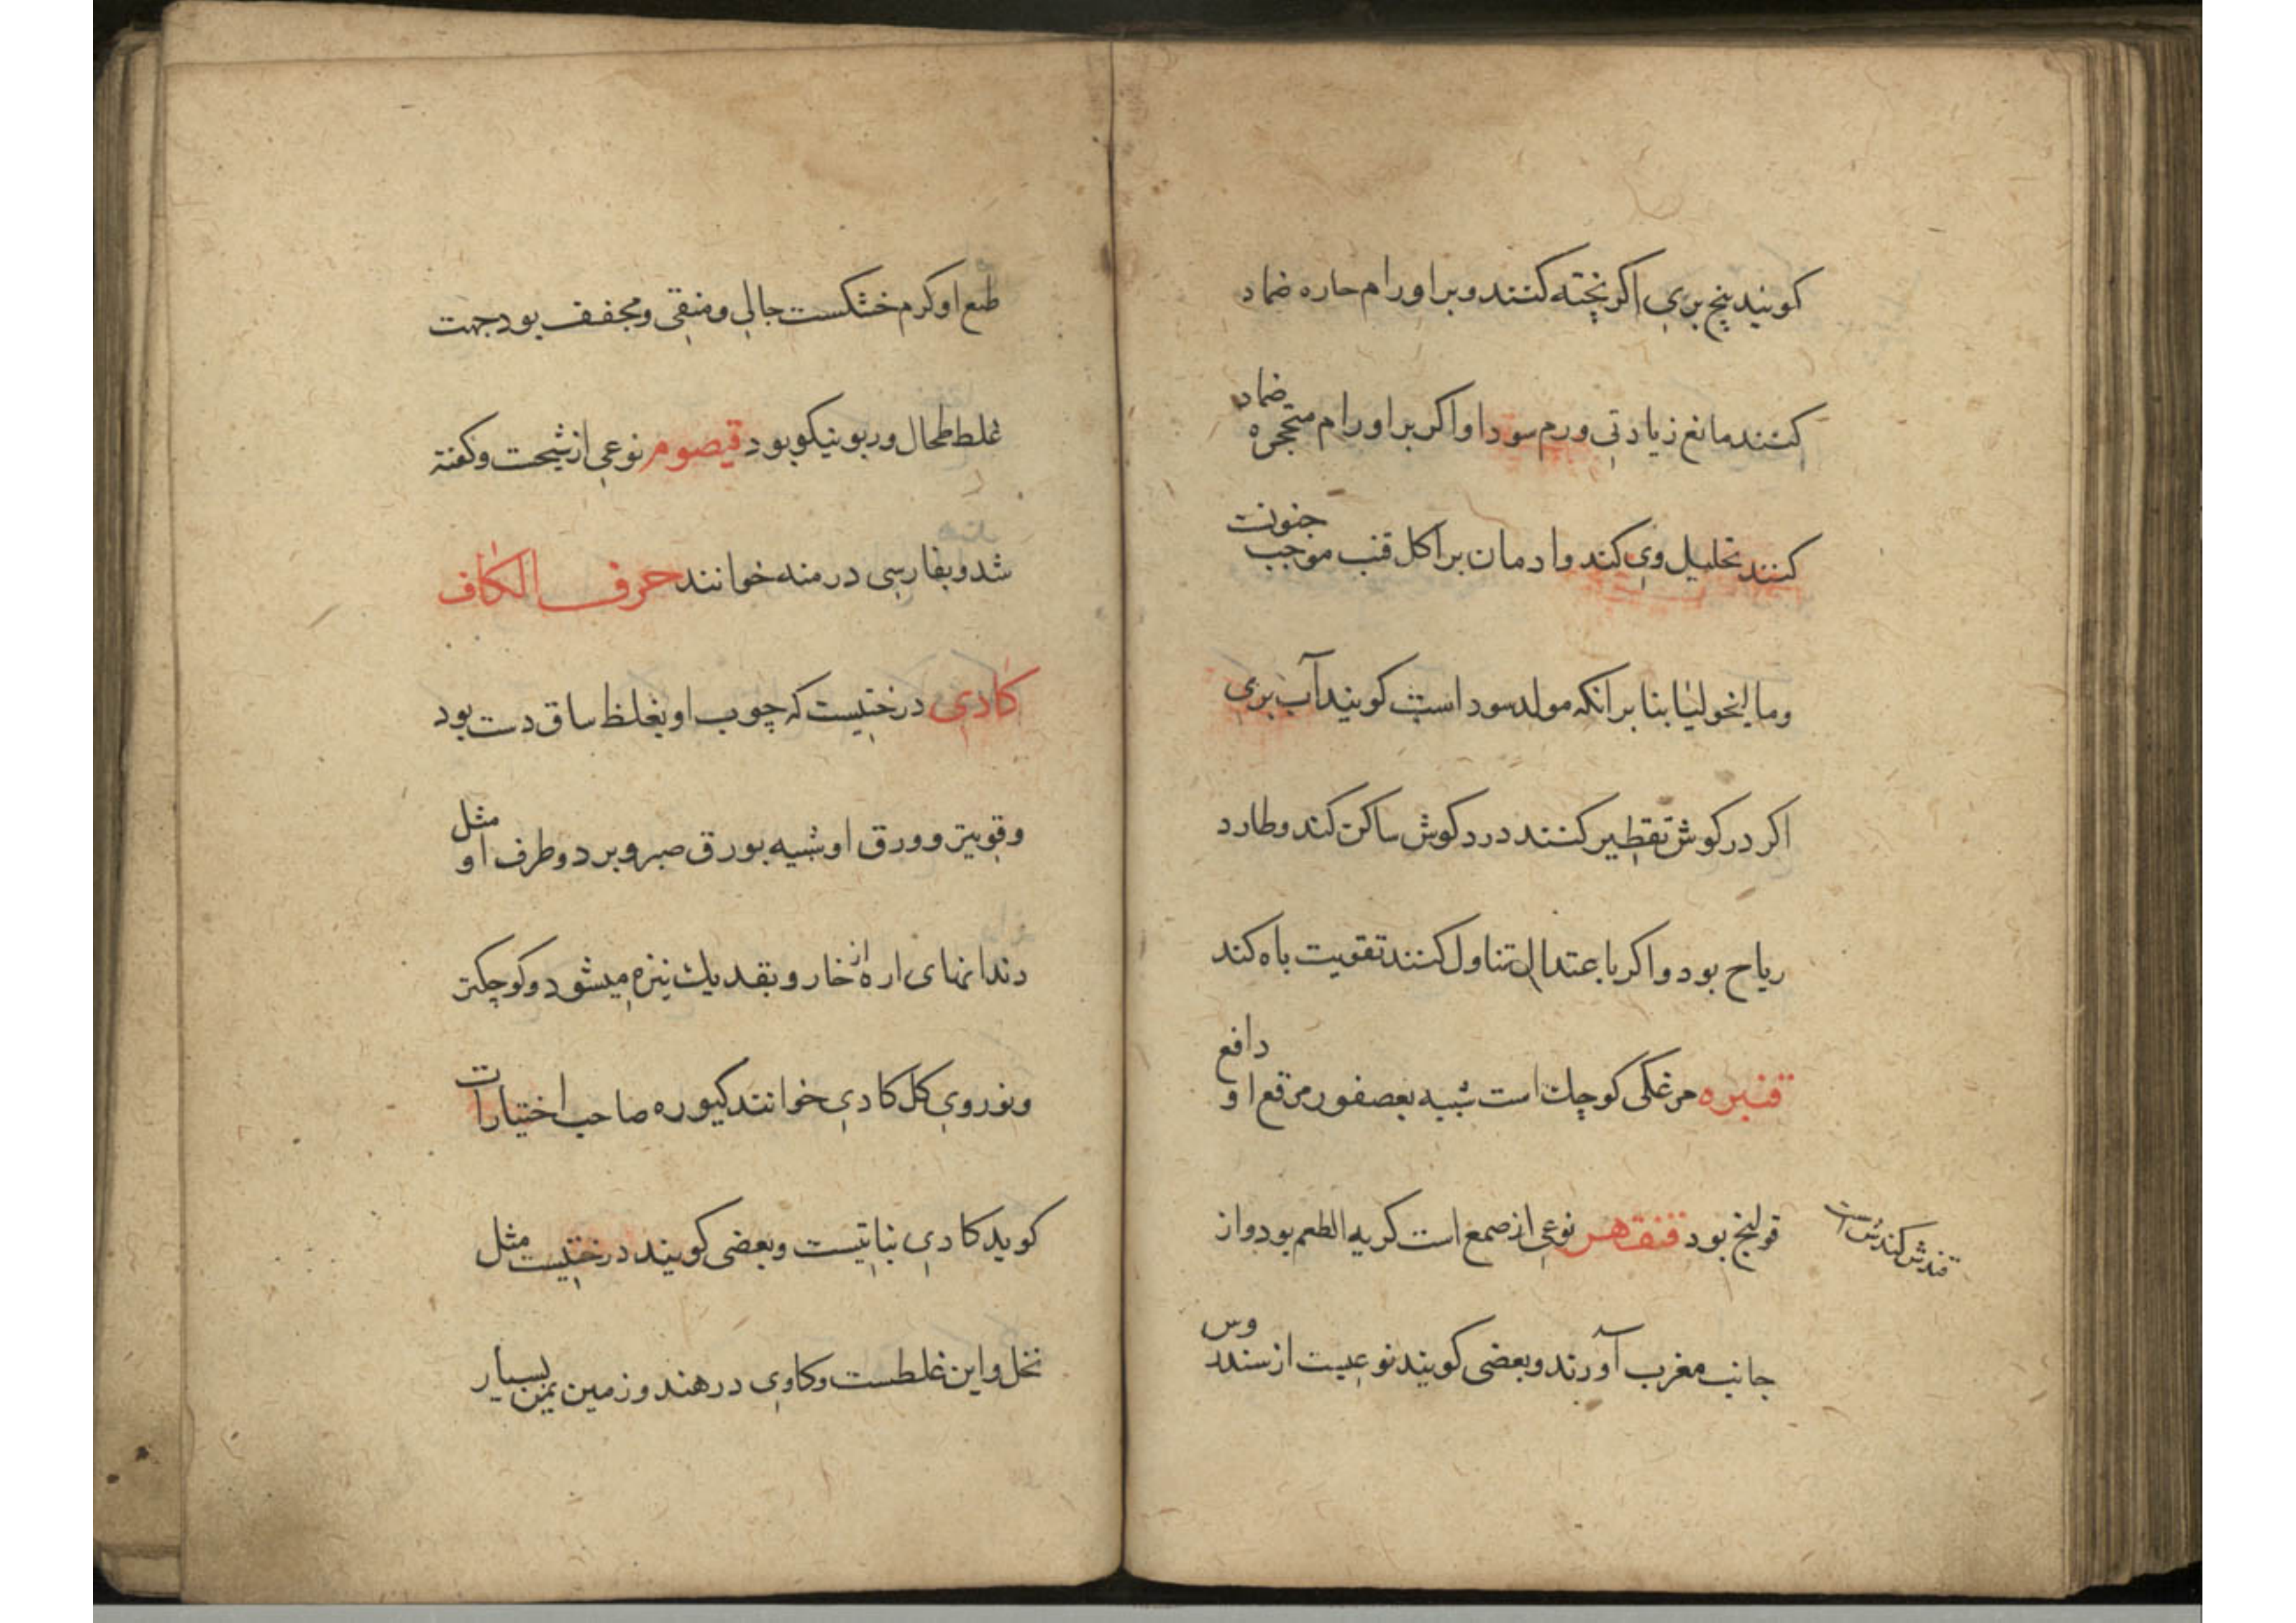 کویند بیخ بری اکر پخته کنند و بر اورام حاره ضماد
کنند مانع زیادتی ورم سود او اکر بر اورام متحجره ضماد
کنند تحلیل وی کند و ادمان بر اکل قنب موجب جنونت
و مالیخولیا بنا بر انکه مولد سود است کویند آب بری
اکر در کوش تقطیر کنند درد کوش ساکن کند و طارد
ریاح بود و اکر با عتدال تناول کنند تقویت باه کند
قنبره مرغکی کوچک است شبیه بعصفور مرقع او دافع
قولنج بود قنقهر نوعی از صمغ است کریه الطعم بود و از
قندش کندش است
جانب مغرب آورند و بعضی کویند نوعیست از سندروس
طبع او کرم خشکست جالی و منقی و مجفف بود جهت
غلط طحال و ربو نیکو بود قیصوم نوعی از شیحست و کفته
شد و بفارسی درمنه خوانند حرف الکاف
کادی درختیست که چوب او بغلظ ساق دست بود
و قویتر و ورق او شبیه بورق صبر و بر دو طرف او مثل
دندانهای اره از خار و بقد یک نیزه میشود و کوچکتر
و نور وی کل کادی خوانند کیوره صاحب اختیارات
کوید کادی نباتیست و بعضی کویند درختیست مثل
نخل و این غلطست و کاوی در هند و زمین یمن بسیار